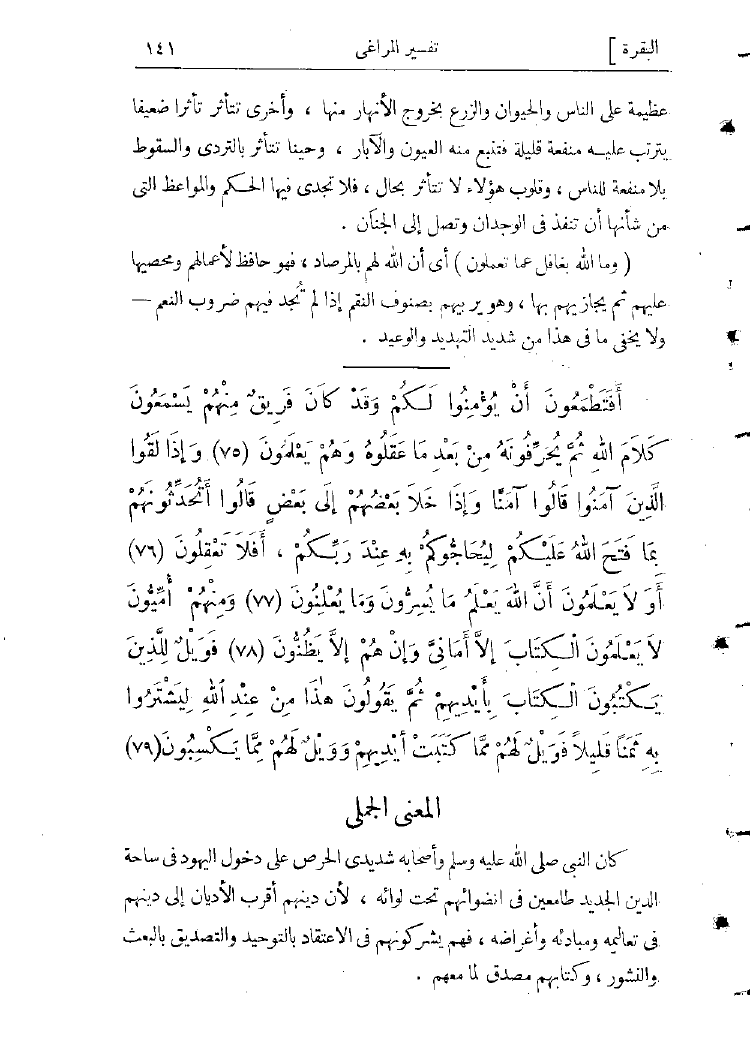 البقرة ] تفسير المراغى ١٤١
عظيمة على الناس والحيوان والزرع بخروج الأنهار منها ، وأخرى تتأثر تأثرا ضعيفا
يترتب عليـه منفعة قليلة فتنبع منه العيون والآبار ، وحينا تتأثر بالتردى والسقوط
بلا منفعة للناس ، وقلوب هؤلاء لا تتأثر بحال ، فلا تجدى فيها الحكم والمواعظ التى
من شأنها أن تنفذ فى الوجدان وتصل إلى الجنان .
( وما الله بغافل عما تعملون ) أى أن الله لهم بالمرصاد ، فهو حافظ لأعمالهم ومحصيها
عليهم ثم يجازيهم بها ، وهو يربيهم بصنوف النقم إذا لم تُجد فيهم ضروب النعم —
ولا يخفى ما فى هذا من شديد التهديد والوعيد .
أَفَتَطْمَعُونَ أَنْ يُؤْمِنُوا لَكُمْ وَقَدْ كَانَ فَرِيقٌ مِنْهُمْ يَسْمَعُونَ
كَلَامَ اللهِ ثُمَّ يُحَرِّفُونَهُ مِنْ بَعْدِ مَا عَقَلُوهُ وَهُمْ يَعْلَمُونَ (٧٥) وَإِذَا لَقُوا
الَّذِينَ آمَنُوا قَالُوا آمَنَّا وَإِذَا خَلَا بَعْضُهُمْ إِلَى بَعْضٍ قَالُوا أَتُحَدِّثُونَهُمْ
بِمَا فَتَحَ اللهُ عَلَيْكُمْ لِيُحَاجُّوكُمْ بِهِ عِنْدَ رَبِّكُمْ ، أَفَلَا تَعْقِلُونَ (٧٦)
أَوَ لَا يَعْلَمُونَ أَنَّ اللهَ يَعْلَمُ مَا يُسِرُّونَ وَمَا يُعْلِنُونَ (٧٧) وَمِنْهُمْ أُمِّيُّونَ
لَا يَعْلَمُونَ الْكِتَابَ إِلَّا أَمَانِىَّ وَإِنْ هُمْ إِلَّا يَظُنُّونَ (٧٨) فَوَيْلٌ لِلَّذِينَ
يَكْتُبُونَ الْكِتَابَ بِأَيْدِيهِمْ ثُمَّ يَقُولُونَ هٰذَا مِنْ عِنْدِ اللهِ لِيَشْتَرُوا
بِهِ ثَمَنًا قَلِيلاً فَوَيْلٌ لَهُمْ مِمَّا كَتَبَتْ أَيْدِيهِمْ وَوَيْلٌ لَهُمْ مِمَّا يَكْسِبُونَ (٧٩)
المعنى الجملى
كان النبى صلى الله عليه وسلم وأصحابه شديدى الحرص على دخول اليهود فى ساحة
الدين الجديد طامعين فى انضوائهم تحت لوائه ، لأن دينهم أقرب الأديان إلى دينهم
فى تعاليمه ومبادئه وأغراضه ، فهم يشركونهم فى الاعتقاد بالتوحيد والتصديق بالبعث
والنشور ، وكتابهم مصدق لما معهم .